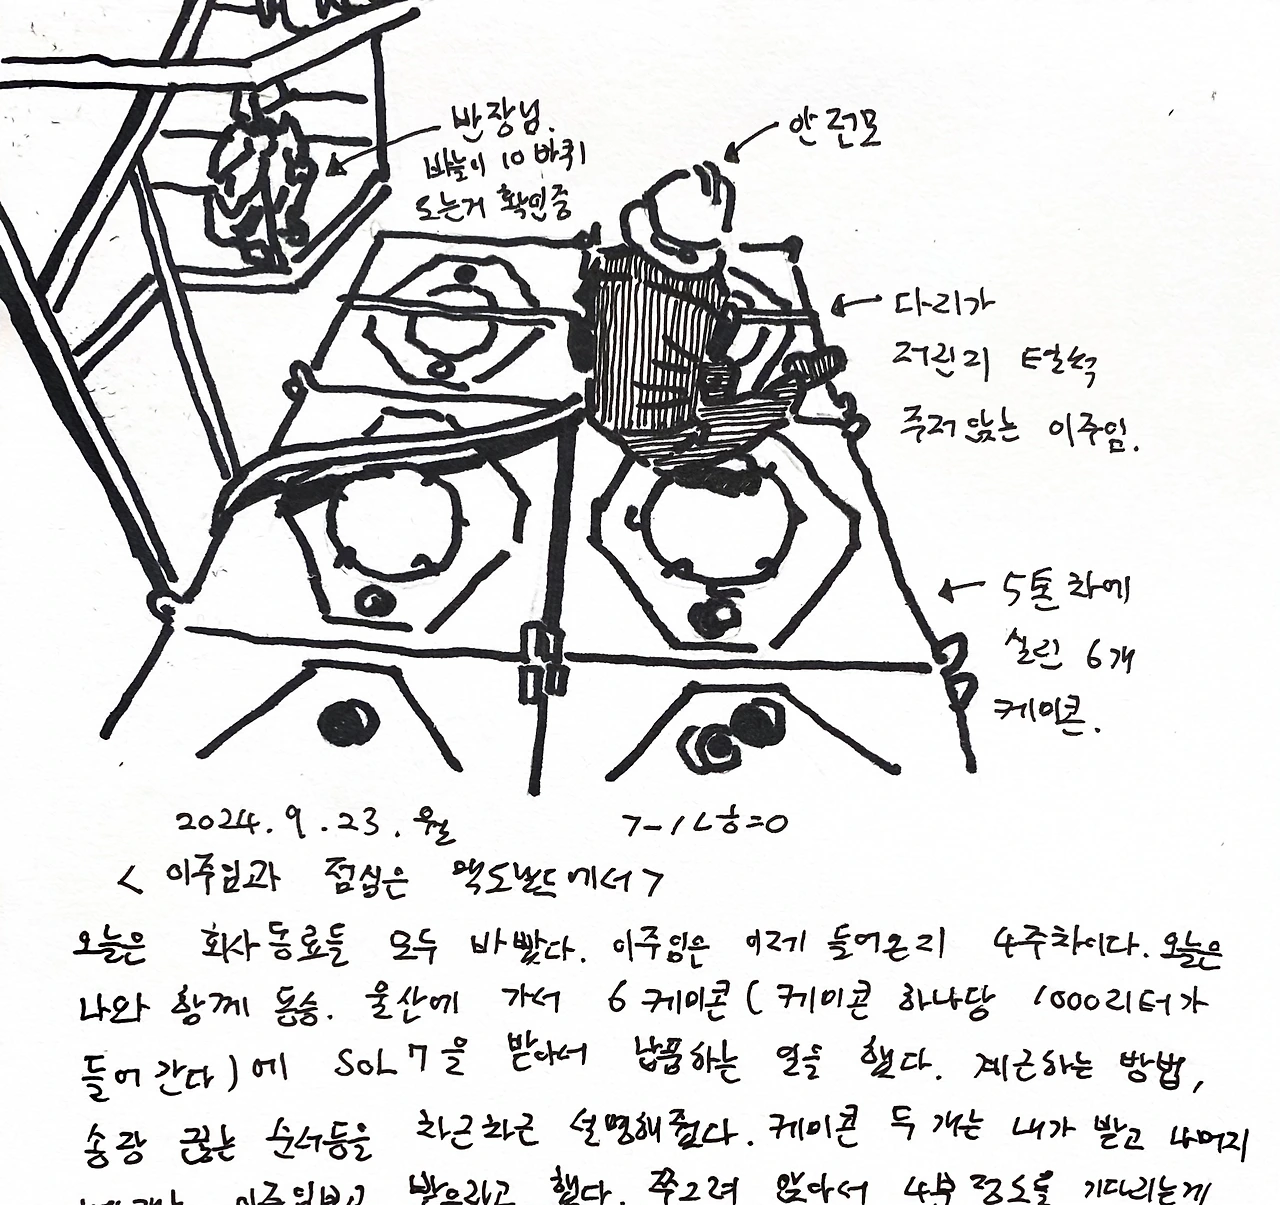 반장님.
바늘이 10바퀴
도는거 확인중
안전모
다리가
저린지 털석
주저 앉는 이주임.
5톤 차에
실린 6개
케미콘.
2024.9.23.월
<이주임과 점심은 맥도날드에서>
오늘은 회사동료들 모두 바빴다. 이주임은 이제 들어온지 4주차이다. 오늘은
나와 함께 동승. 울산에 가서 6케미콘(케미콘 하나당 1000리터가
들어간다)에 SOL7을 받아서 납품하는 일을 했다. 계근하는 방법,
송장 끊는 순서등을 차근차근 설명해줬다. 케미콘 두개는 내가 받고 나머지
이주임보고 받으라고 했다. 쭈그려 앉아서 4분정도를 기다리는게